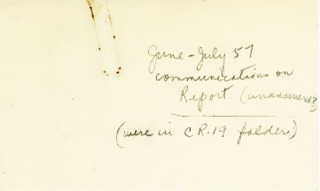 June-July 57
communications on
Report (unanswered?)
(were in CR.19 folders)